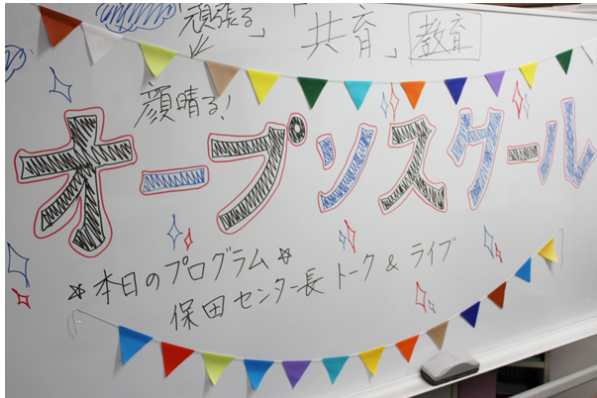 「頑張る」 「共育」 教育
顔晴る!
オープンスクール
☆本日のプログラム☆
保田センター長トーク & ライブ